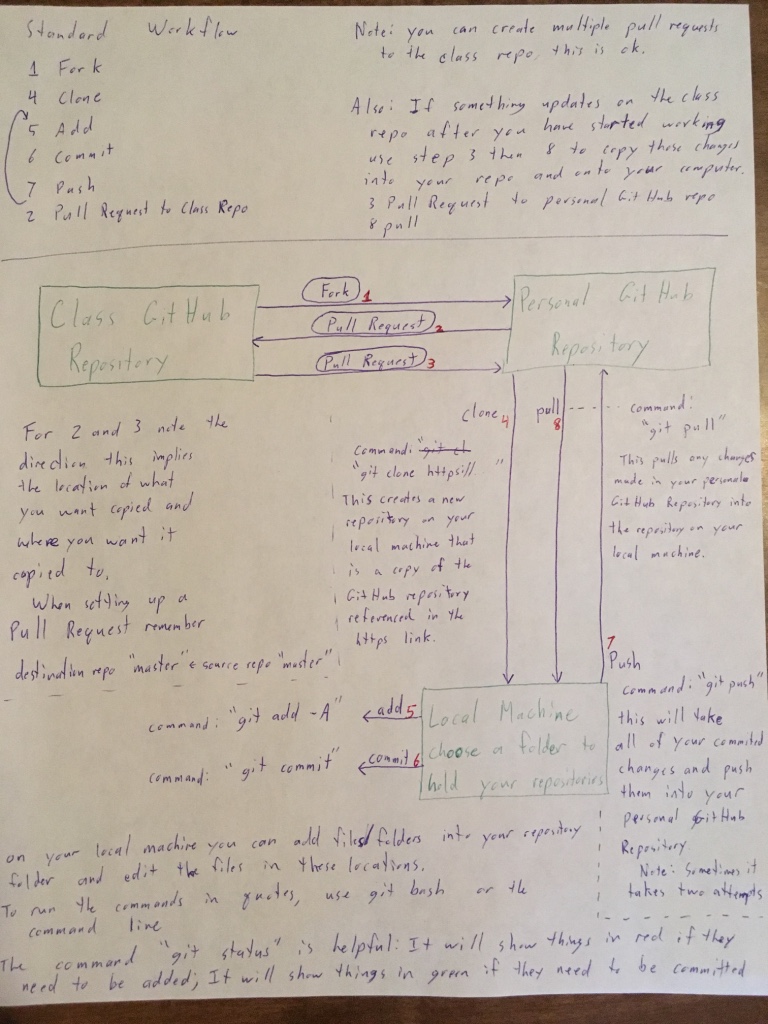 Standard Workflow
1 Fork
4 Clone
5 Add
6 Commit
7 Push
2 Pull Request to Class Repo
Note: you can create multiple pull requests
to the class repo, this is ok.
Also: If something updates on the class
repo after you have started working
use step 3 then 8 to copy those changes
into your repo and onto your computer.
3 Pull Request to personal GitHub repo
8 pull
Class GitHub
Repository
Fork 1
Pull Request 2
Pull Request 3
Personal GitHub
Repository
For 2 and 3 note the
direction this implies
the location of what
you want copied and
where you want it
copied to.
When setting up a
Pull Request remember
destination repo "master" ← source repo "master"
clone 4
command: "git cl
"git clone https://    "
This creates a new
repository on your
local machine that
is a copy of the
GitHub repository
referenced in the
https link.
pull 8
command:
"git pull"
This pulls any changes
made in your personal
GitHub Repository into
the repository on your
local machine.
7
Push
command: "git push"
this will take
all of your commited
changes and push
them into your
personal GitHub
Repository
Note: Sometimes it
takes two attempts
Local Machine
choose a folder to
hold your repositories
add 5
command: "git add -A"
commit 6
command: "git commit"
on your local machine you can add files/folders into your repository
folder and edit the files in these locations.
To run the commands in quotes, use git bash or the
command line
The command "git status" is helpful: It will show things in red if they
need to be added; It will show things in green if they need to be committed